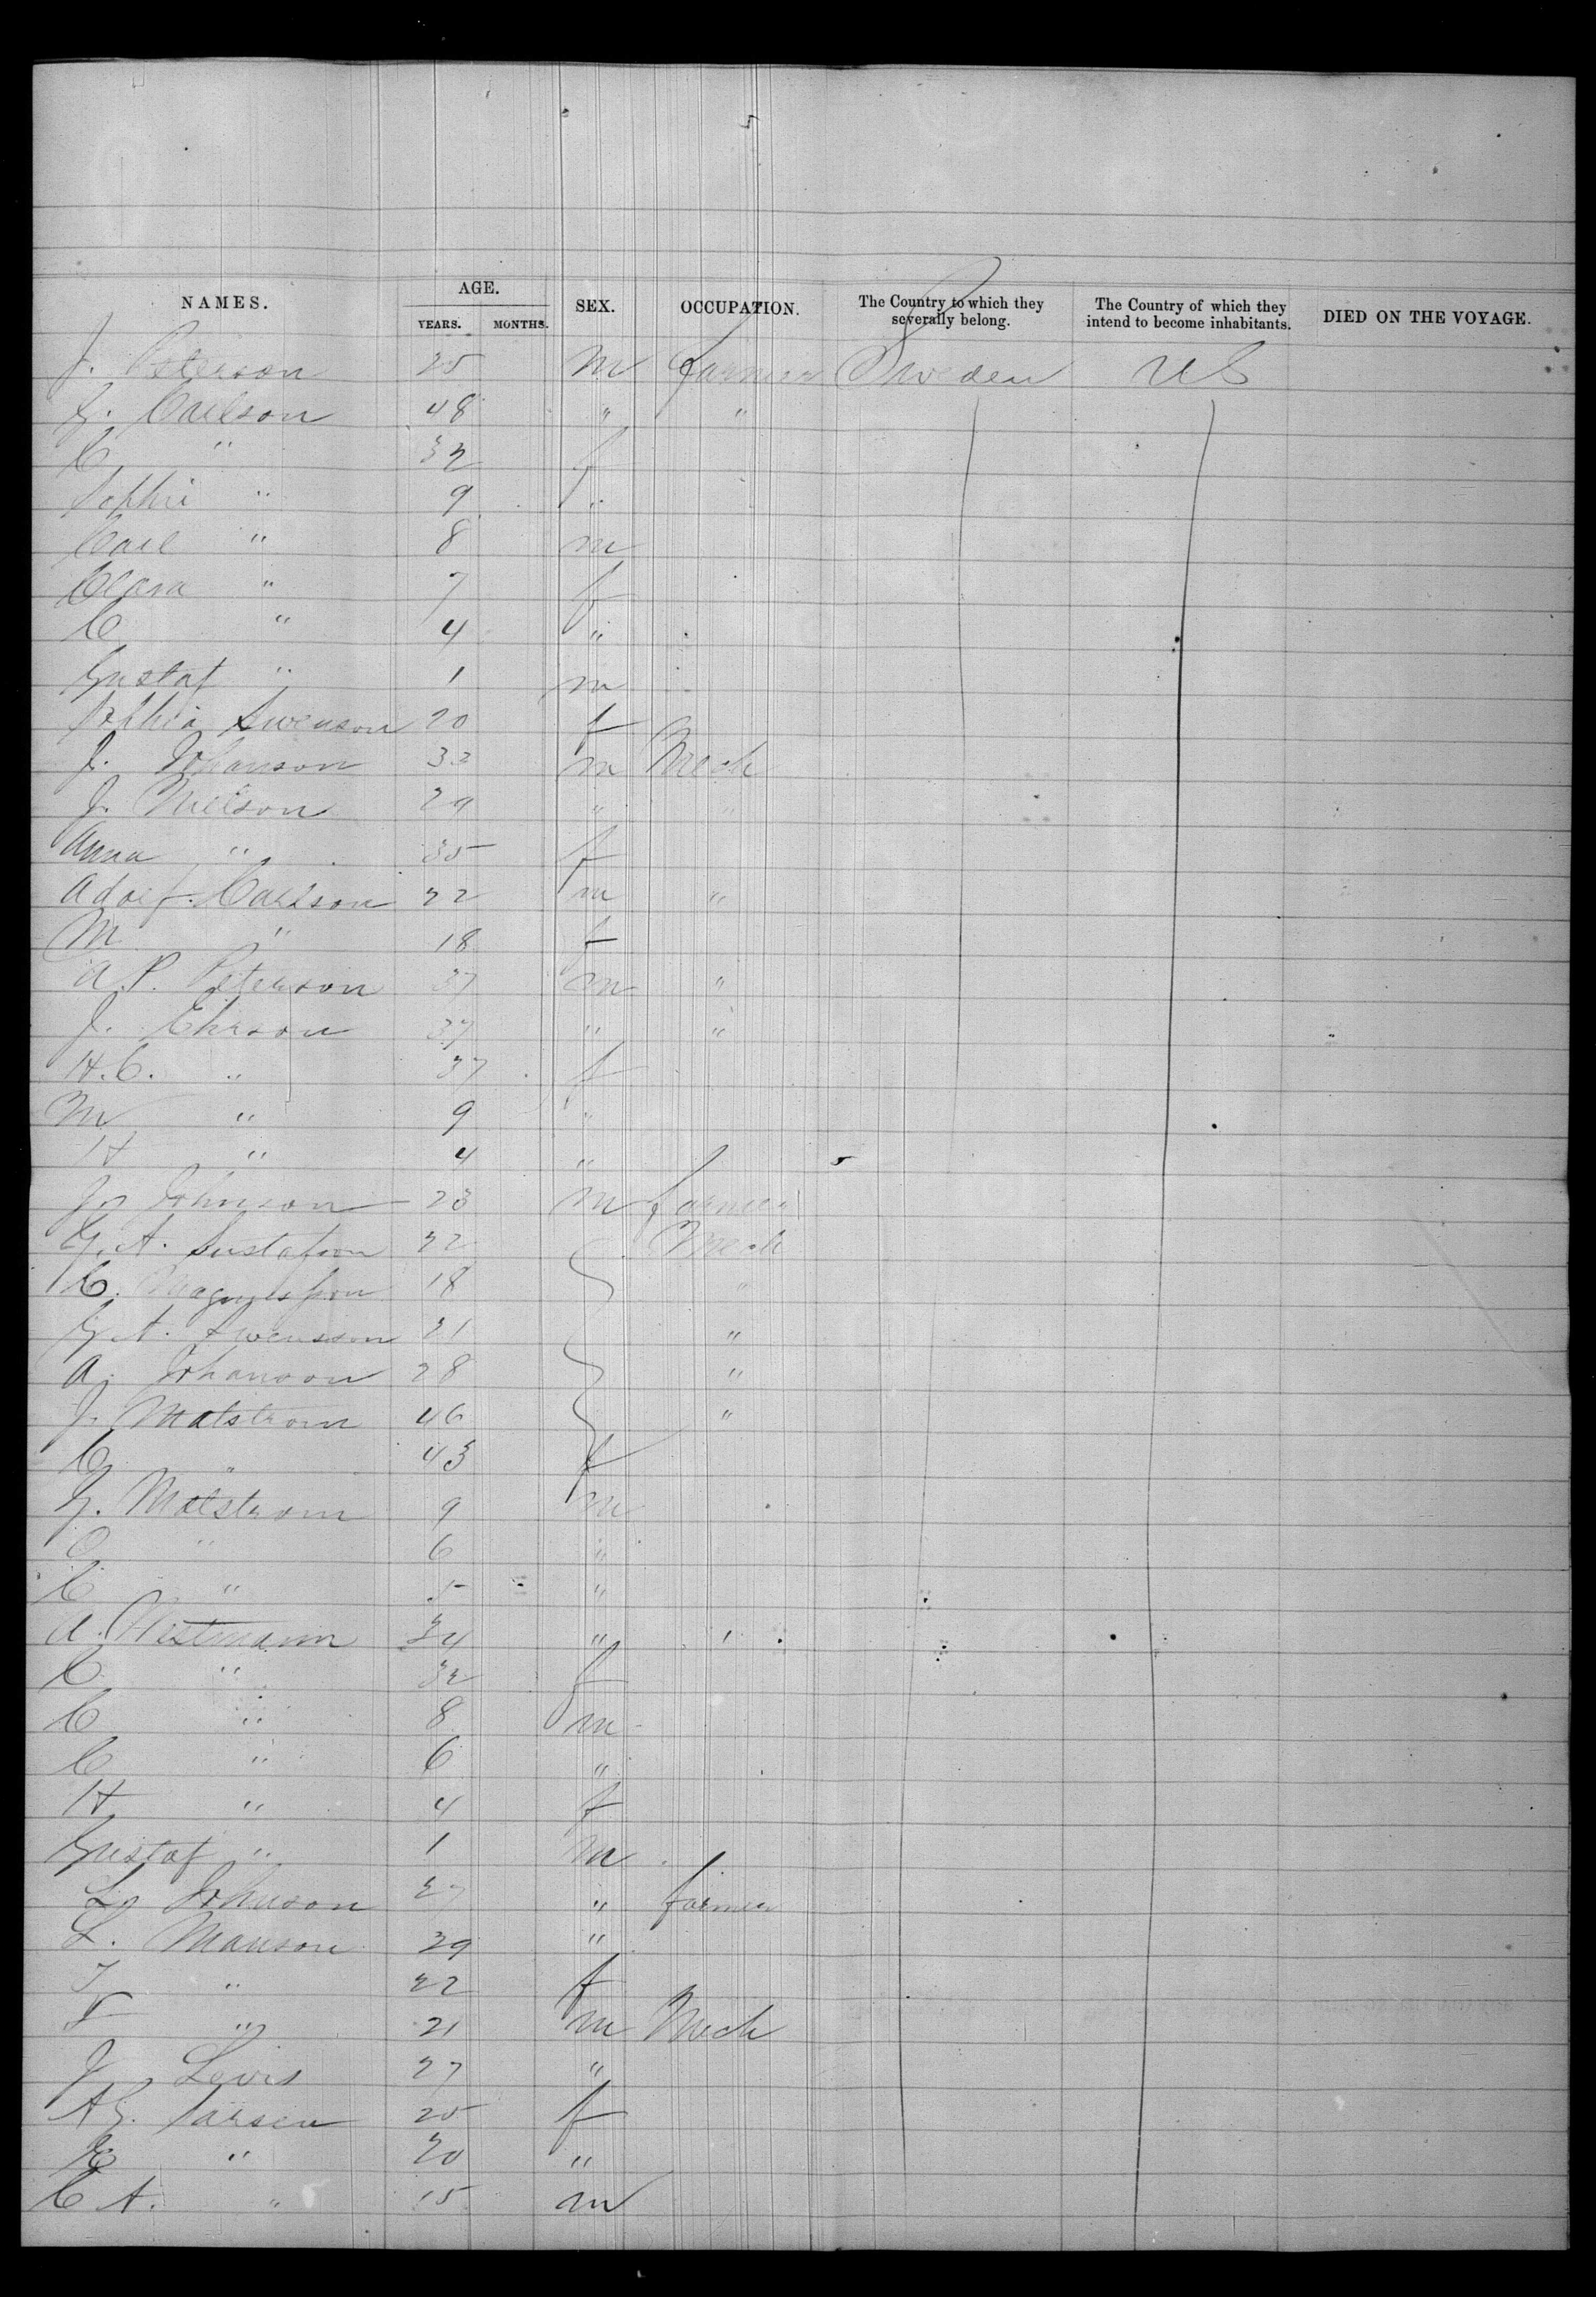 5
NAMES. AGE. YEARS. MONTHS. SEX. OCCUPATION. The Country to which they severally belong. The Country of which they intend to become inhabitants. DIED ON THE VOYAGE.
J. Peterson 25 m farmer Sweden US
G. Carlson 48 " "
C. " 32 f
Sophie " 9 "
Carl " 8 m
Clara " 7 f
C " 4 "
Gustaf " 1 m
Sophia Swenson 20 f
J. Johanson 33 m Mech
J. Nielson 29 " "
Anna " 35 f
Adolf Carlson 22 m "
M " 18 f
A. P. Peterson 37 m "
J. Ehrson 37 " "
H. C. " 37 f
M " 9 "
H " 4 "
J. Johnson 23 m farmer
G. A. Gustafson 22 Mech
C. Magnusson 18 "
G. A. Swensson 21 "
A. Johanson 28 "
J. Malstrom 46 "
C " 43 f
G. Malstrom 9 m
" 6 "
C " 5 "
A. Westmann 34 " "
C " 32 f
C " 8 m
C " 6 "
H " 4 f
Gustaf " 1 m
L. Johnson 27 " farmer
L. Manson 29 "
" 22 f
" 21 m Mech
J Lewis 27 "
A G. Larsen 25 f
" 20 "
C A. " 15 m